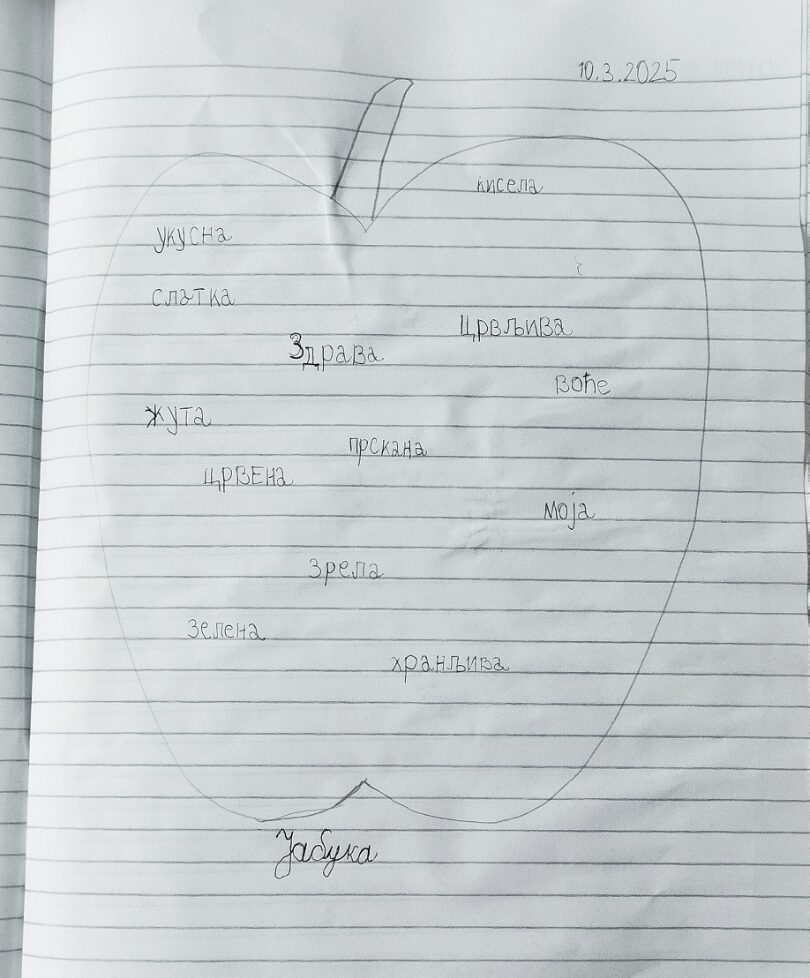 10.3.2025
кисела
укусна
слатка
Црвљива
Здрава
воће
жута
прскана
црвена
моја
зрела
зелена
хранљива
Јабука